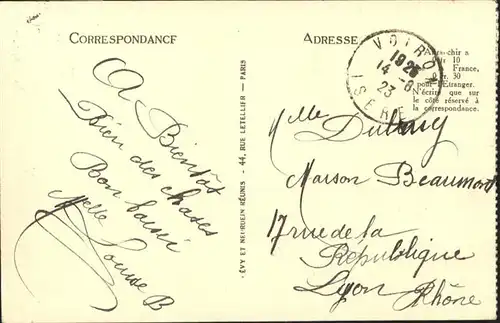 CORRESPONDANCE
A Bientôt
Bien des choses
Bon baiser
Melle
Louise B
LÉVY ET NEURDEIN RÉUNIS - 44, RUE LETELLIER - PARIS
ADRESSE
VOIRON
19 25
14 -8
23
ISERE
Affranchir à
10
France,
30
pour l'Étranger.
N'écrire que sur
le côté réservé à
la correspondance.
Melle
Maison Beaumont
17 rue de la
République
Lyon
Rhône